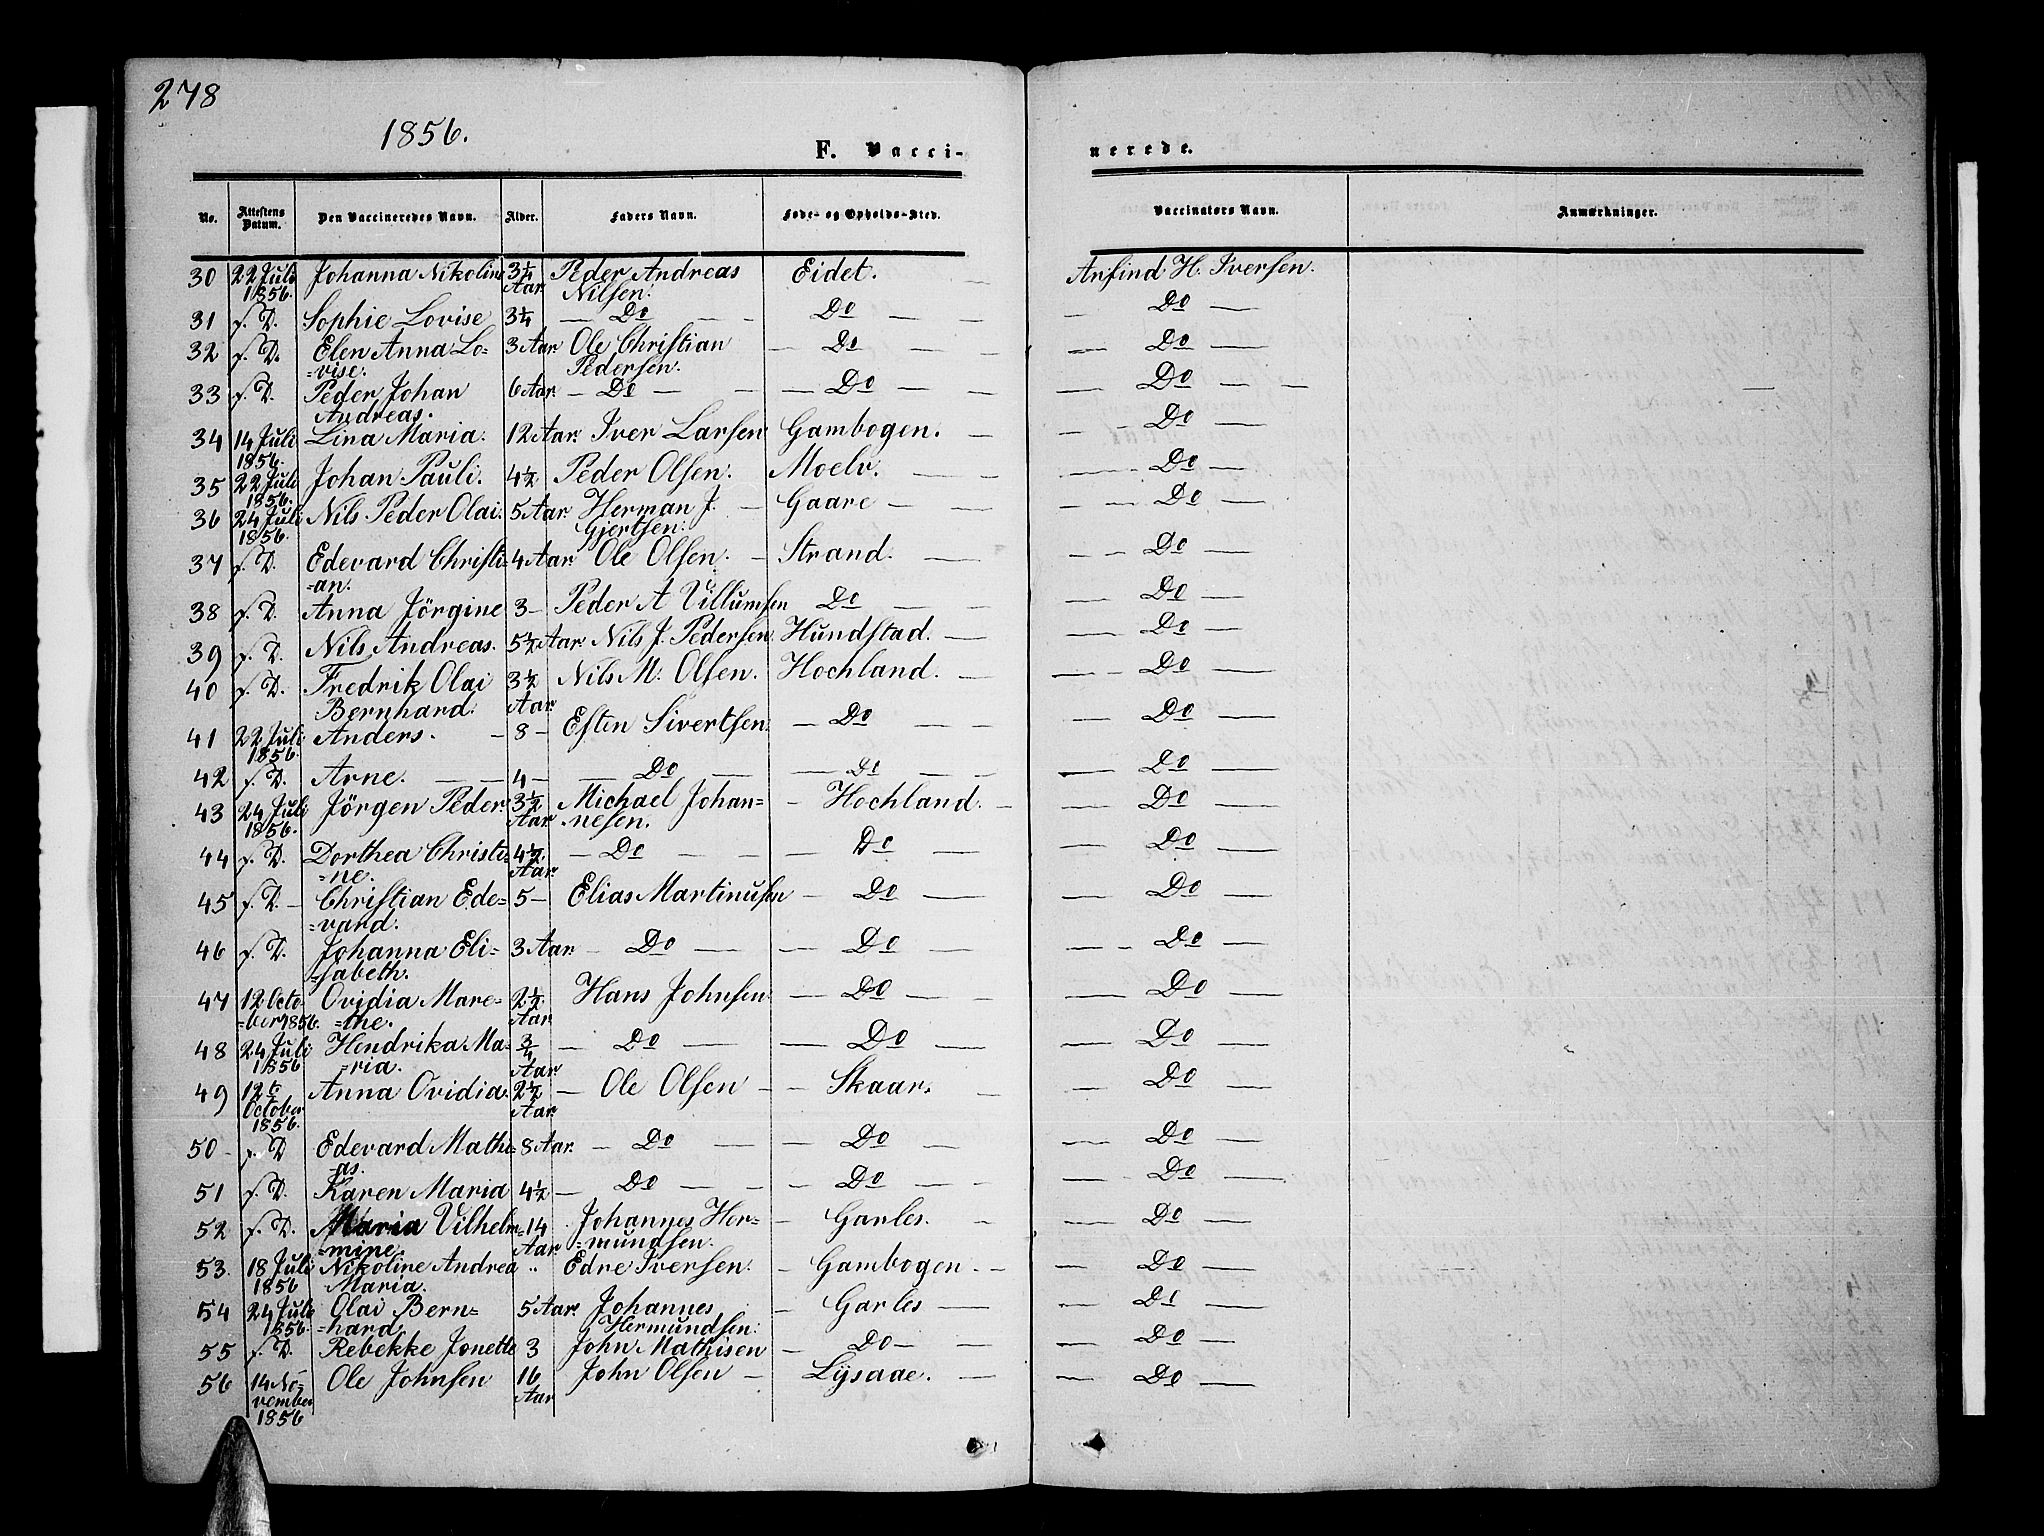 278
1856.
F. Vacci-
nerede.
No. Attestens Datum. Den Vaccineredes Navn. Alder. Faders Navn. Føde- og Opholds-Sted. Vaccinators Navn. Anmærkninger.
30 22 Juli 1856. Johanna Nikoline 3¼ Aar Peder Andreas Nilsen. Eidet. Arfind H. Iversen.
31 f. D. Sophie Lovise 3¼ — Do — — Do — — Do —
32 f. D. Elen Anna Lo= =vise. 3 Aar. Ole Christian Pedersen. — Do — — Do —
33 f. D. Peder Johan Andreas. 6 Aar. — Do — — — Do — — Do — —
34 14 Juli 1856. Lina Maria. 12 Aar. Iver Larsen Gambogen. — — Do —
35 22 Juli 1856. Johan Pauli. 4½ Peder Olsen. Moelv. — — Do —
36 24 Juli 1856. Nils Peder Olai. 5 Aar. Herman J. Gjertsen. — Gaare — — — Do —
37 f. D. Edevard Christi= =an. 4 Aar. Ole Olsen. — Strand. — — — Do —
38 f. D. Anna Jörgine 3 — Peder A Villumsen Do — — Do —
39 f. D. Nils Andreas. 5½ Aar. Nils J. Pedersen. Hundstad. — — Do —
40 f. D. Fredrik Olai Bernhard. 3½ Aar. Nils M. Olsen. Hochland. — — Do —
41 22 Juli 1856. Anders. — 8 — Esten Sivertsen. — Do — — Do —
42 f. D. Arne. — — 4 — — Do — — Do — — Do —
43 24 Juli 1856. Jörgen Peder. 3½ Aar. Michael Johan= =nesen. — Hochland. — — Do —
44 f. D. Dorthea Christi= =ne. 4½ Aar. — Do — — Do — — Do —
45 f. D. — Christian Ede= =vard. 5 — Elias Martinusen — Do — — Do —
46 f. D. Johanna Eli= =sabeth. 3 Aar. — Do — — Do — — Do —
47 12 Octo= =ber 1856. Ovidia Mare= =the. 2½ Aar. Hans Johnsen — Do — — Do —
48 24 Juli 1856 Hendrika Ma= =ria. ¾ Aar. — Do — — Do — — Do —
49 12te October 1856. Anna Ovidia. 2½ Aar. — Ole Olsen — — Skaar. — — Do —
50 — f. D Edevard Mathi= =as. 8 Aar. — Do — — Do — — Do —
51 f. D. Karen Maria 4½ — Do — — Do — — Do —
52 f. D. Maria Vilhelm= =mine. 14 Aar. Johannes Her= =mundsen. — Garles. — — Do —
53. 18 Juli 1856 Nikoline Andrea Maria. „ Edre Iversen. — Gambogen. — — Do —
54 24 Juli 1856. Olai Bern= =hard. 5 Aar. Johannes Hermundsen. — Garles — — Do —
55 f. D. Rebekke Jonette 3 John Mathisen — Do — — Do —
56 14 No= vember 1856 Ole Johnsen 16 Aar John Olsen — Lÿsaae. — — Do —